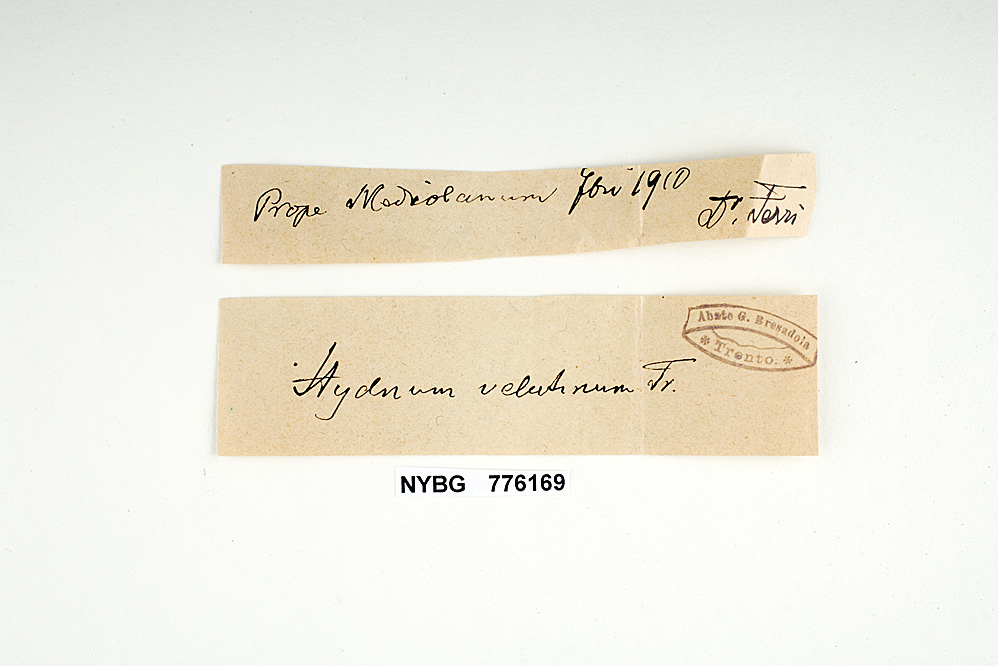 Prope Mediolanum 7bri 1910
Dr. Ferri
Abate G. Bresadola
* Trento. *
Hydnum velutinum Fr.
NYBG 776169